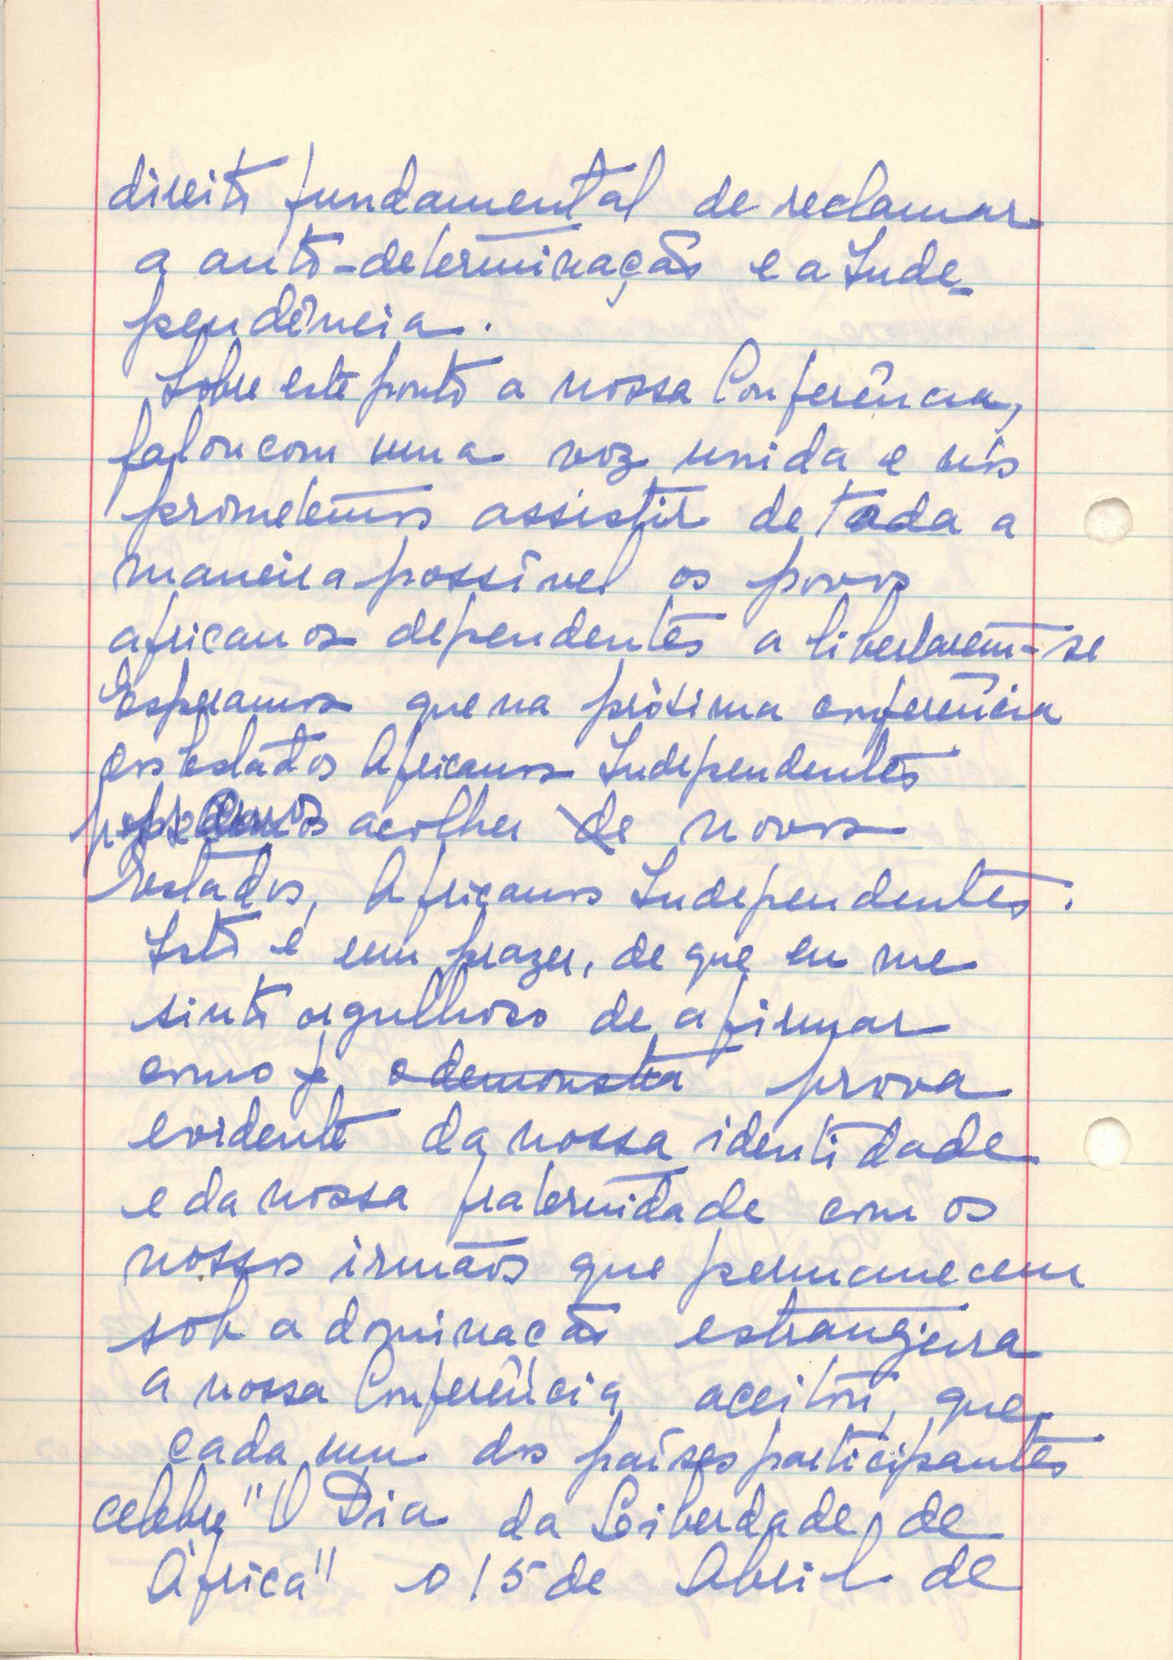 direito fundamental de reclamar
a auto-determinação e a Inde-
pendência.
Sobre este ponto a nossa Conferência,
falou com uma voz unida e nós
prometemos assistir de toda a
maneira possível os povos
africanos dependentes a libertarem-se
Esperamos que na próxima conferência
dos Estados Africanos Independentes
acolher de novos
Estados, Africanos Independentes.
Isto é um prazer, de que eu me
sinto orgulhoso de afirmar
como já o demonstra prova
evidente da nossa identidade
e da nossa fraternidade com os
nossos irmãos que permanecem
sob a dominação estrangeira
a nossa Conferência aceitou, que
cada um dos países participantes
celebre "O Dia da Liberdade, de
África" o 15 de Abril de